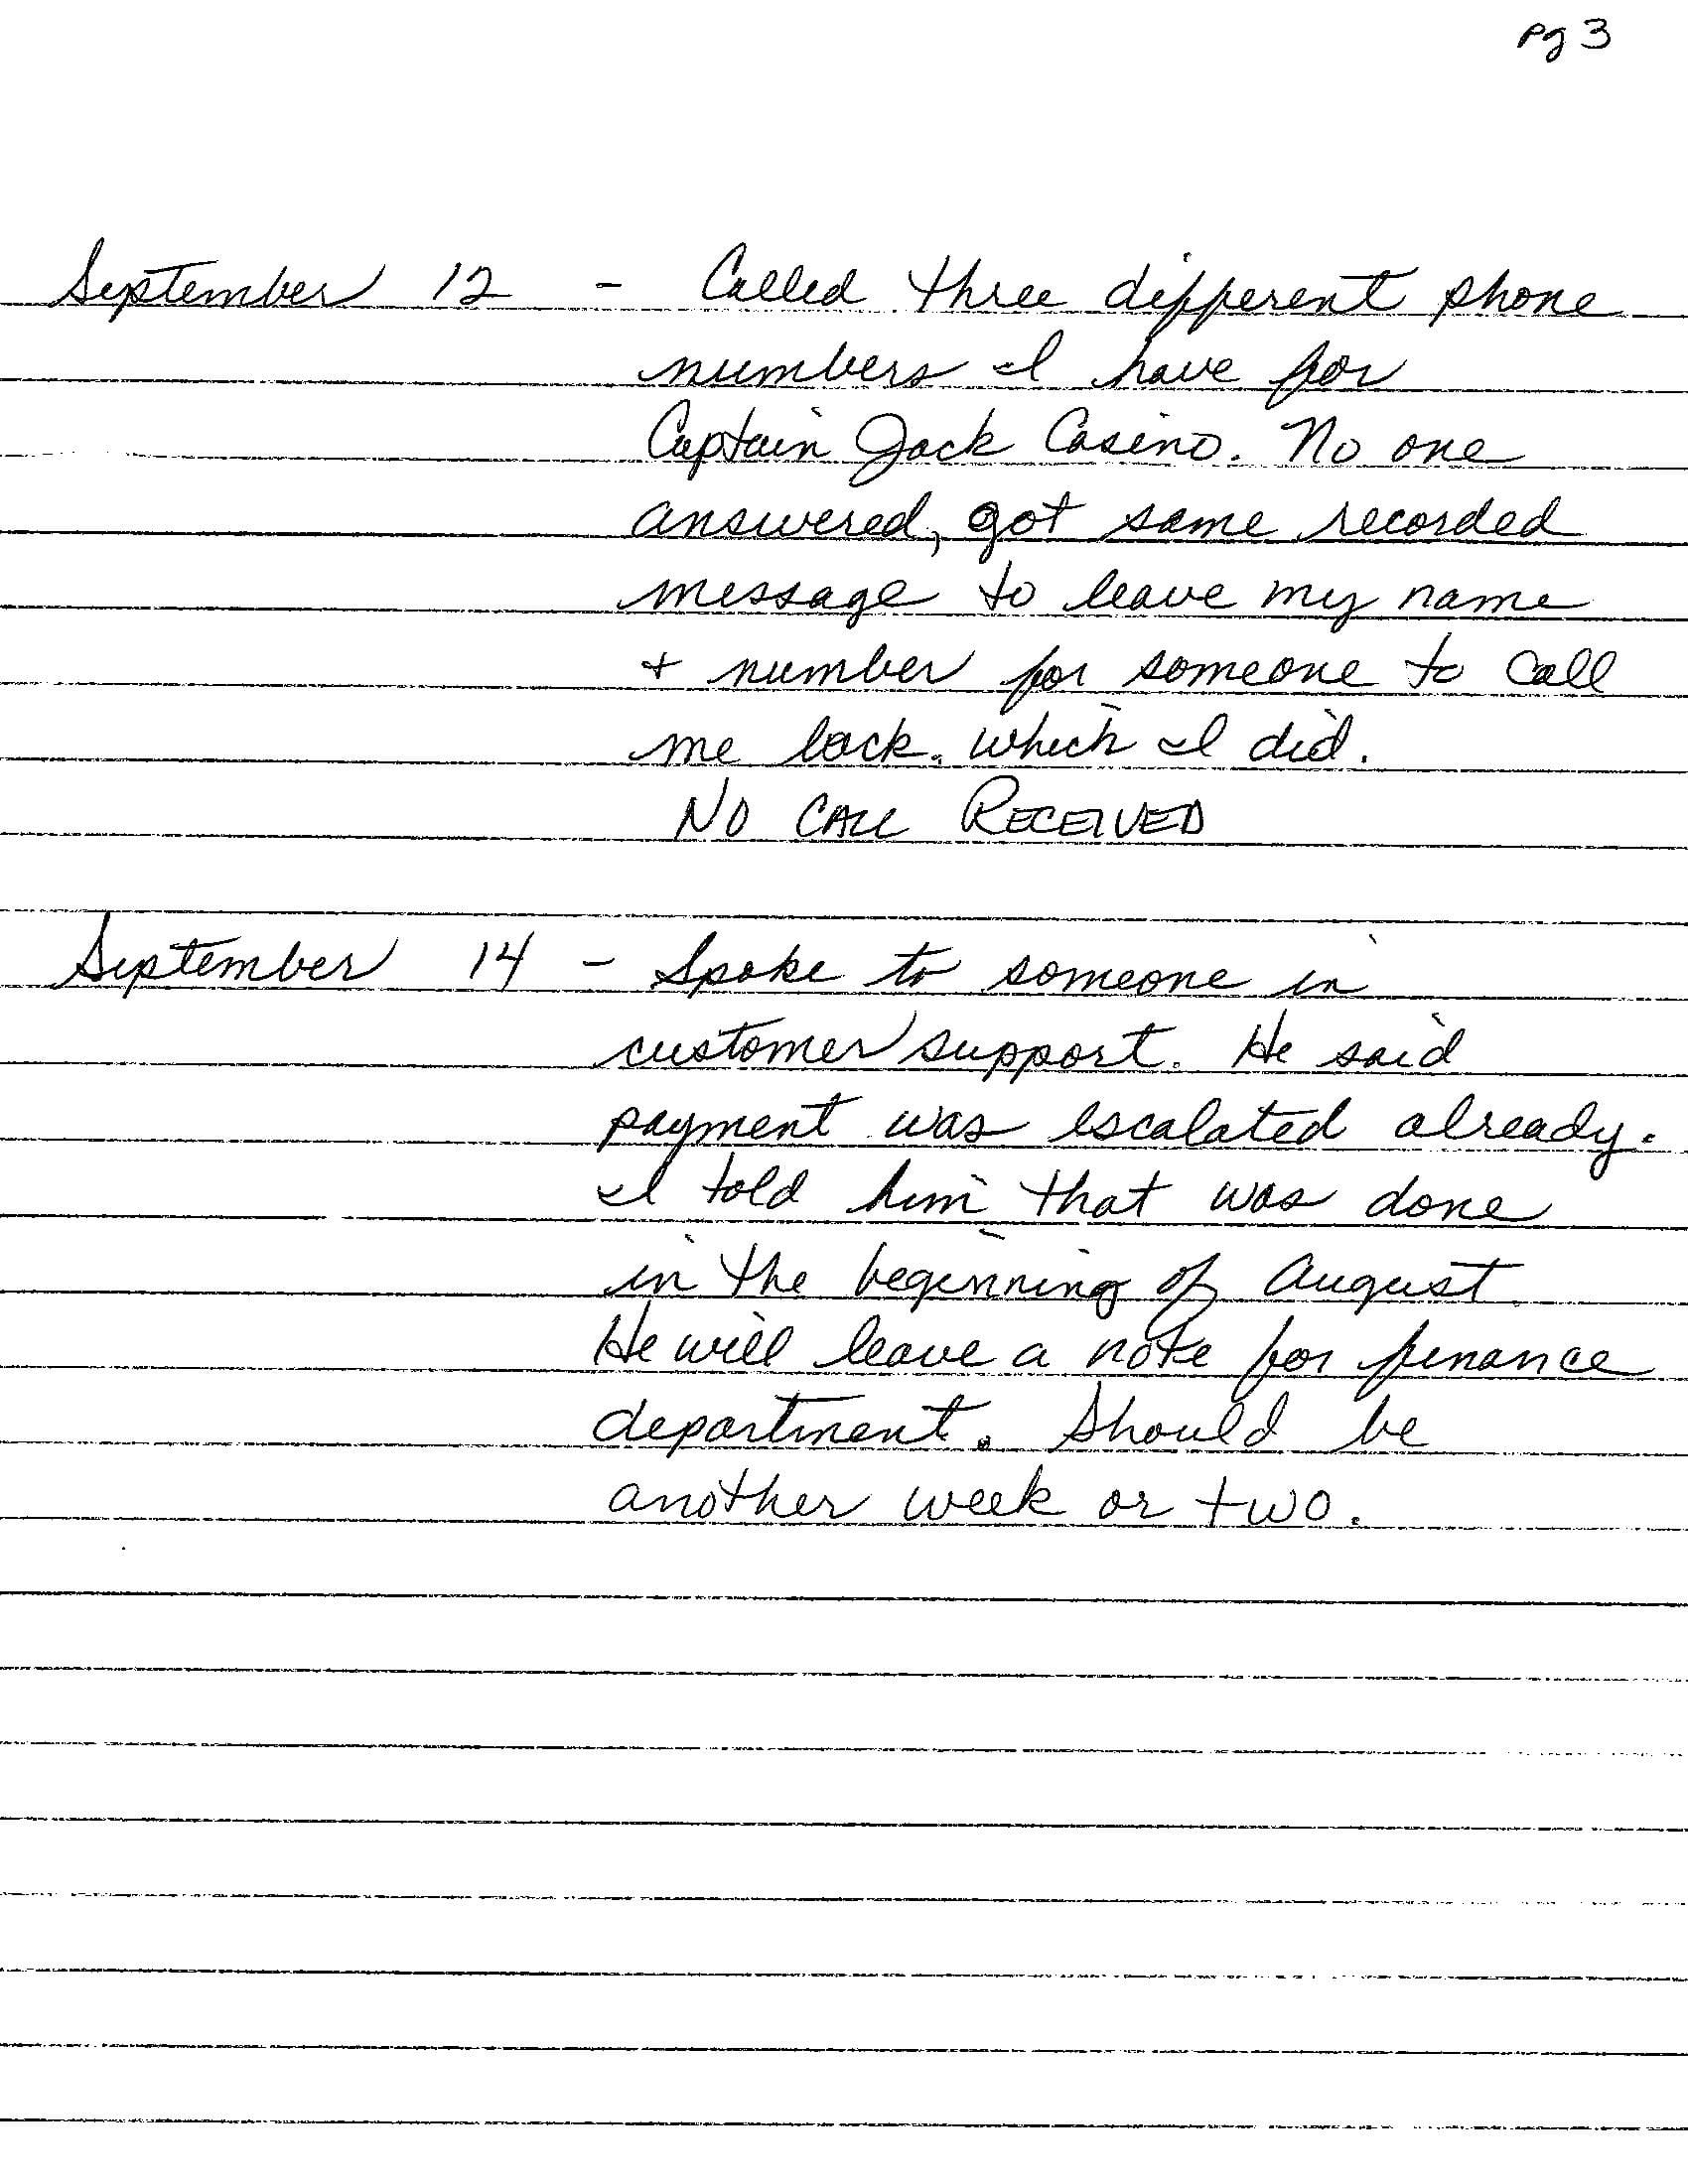 pg 3
September 12 - Called three different phone
numbers I have for
Captain Jack Casino. No one
answered, got same recorded
message to leave my name
+ number for someone to call
me back. which I did.
NO CALL RECEIVED
September 14 - Spoke to someone in
customer support. He said
payment was escalated already.
I told him that was done
in the beginning of August.
He will leave a note for finance
department. Should be
another week or two.